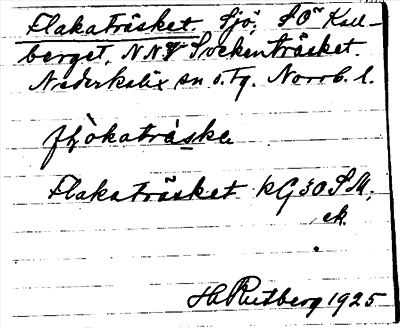 Flakaträsket. Sjö, SO" Kall-
berget, NNV Sockenträsket.
Nederkalix sn o. tg. Norrb. l.
flòkatràske
Flakaträsket kG 30 SM,
ek.
H Rutberg 1925